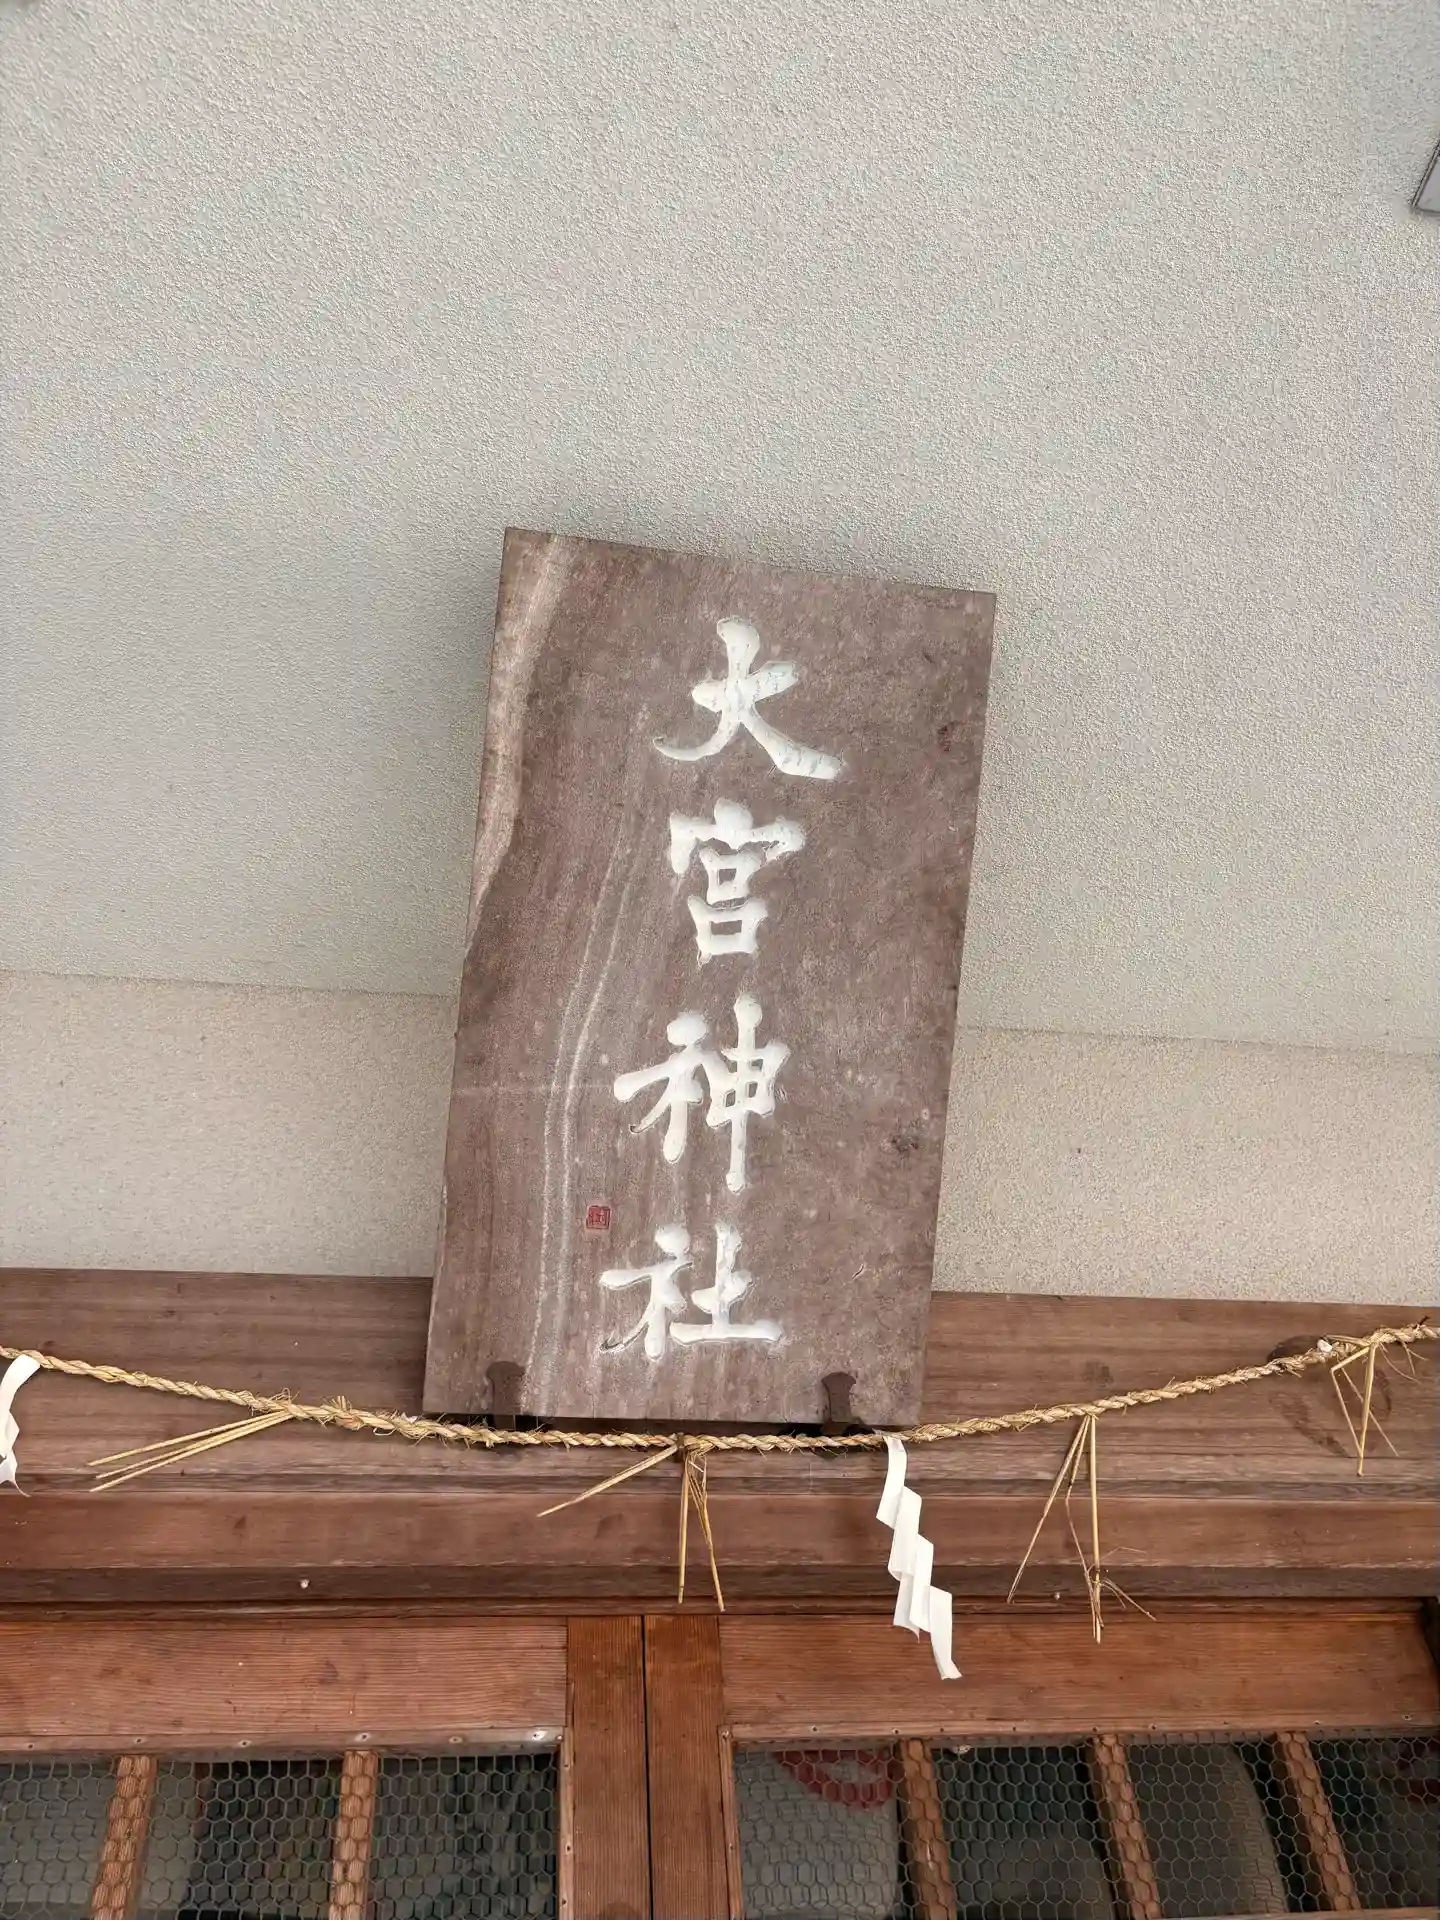 大宮神社